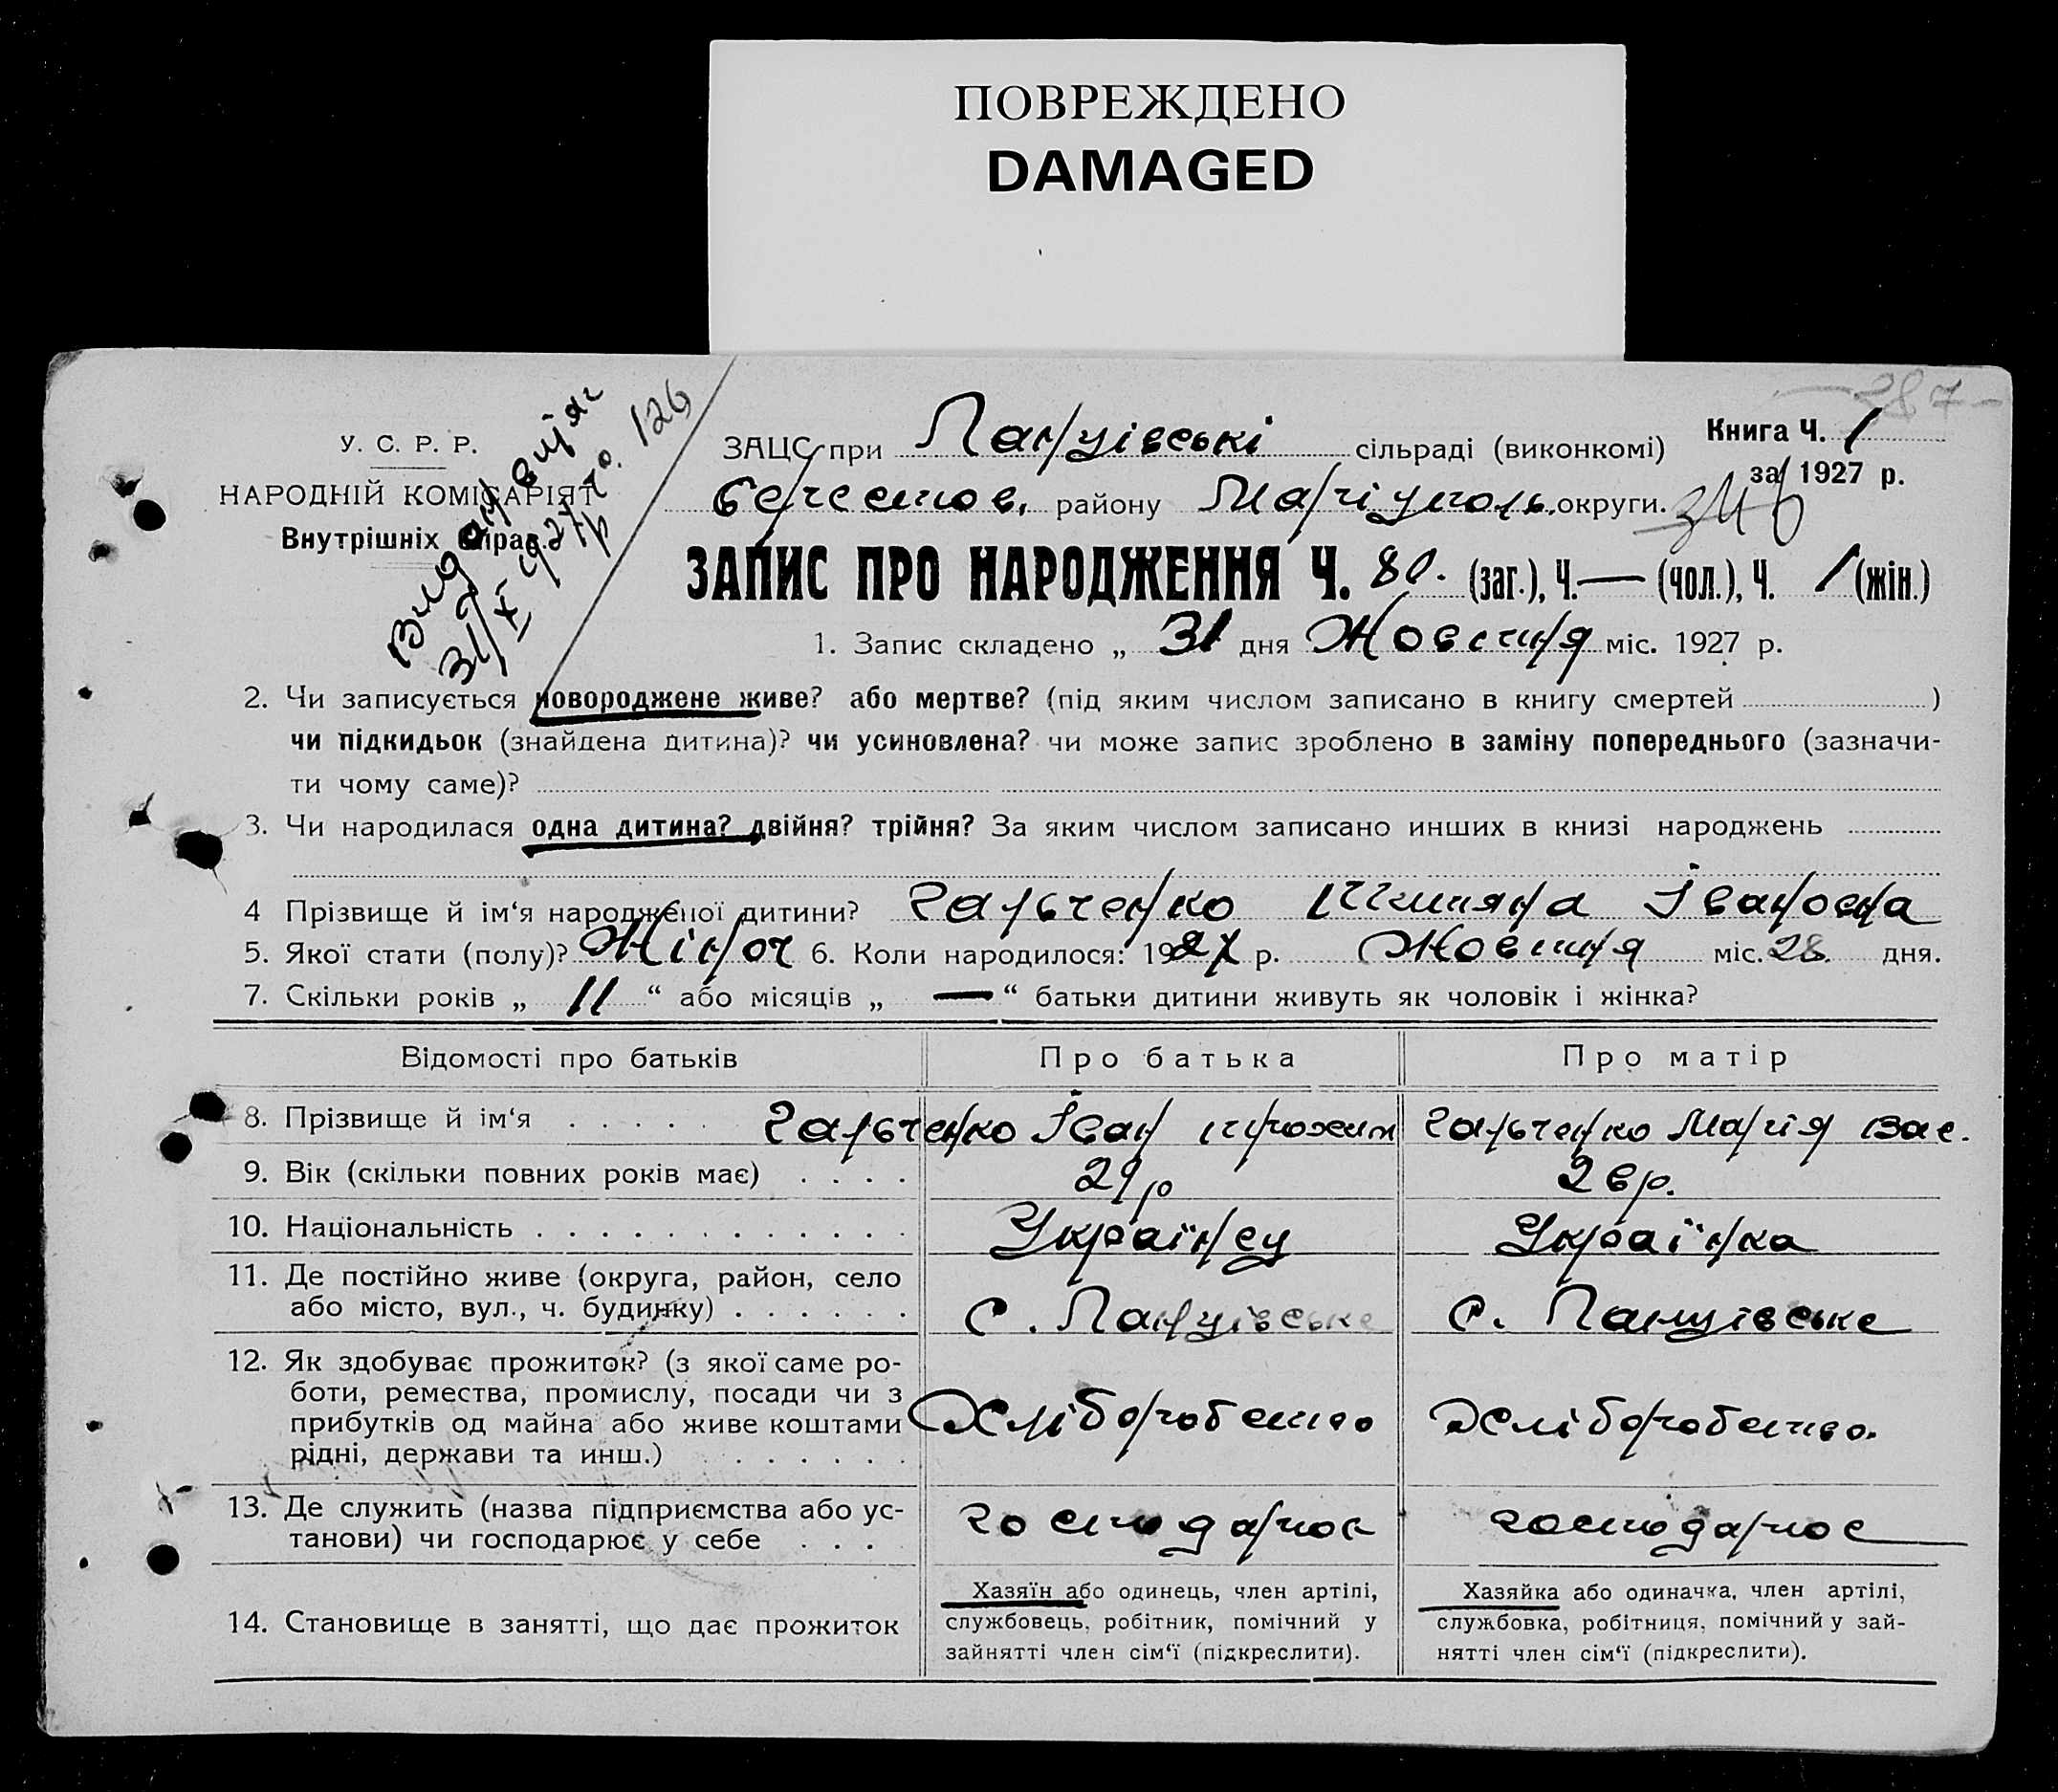 ПОВРЕЖДЕНО
DAMAGED
287
У. С. Р. Р.
НАРОДНІЙ КОМІСАРІЯТ
Внутрішніх Справ.
Видан витяг
31/X 1927 р. 126
Книга Ч. 1
за 1927 р.
ЗАЦС при Ланцівські сільраді (виконкомі)
Берестов. району Маріуполь. округи.
ЗАПИС ПРО НАРОДЖЕННЯ Ч. 80. (заг.), Ч. — (чол.), Ч. 1 (жін.)
1. Запис складено „ 31 дня Жовтня міс. 1927 р.
2. Чи записується новороджене живе? або мертве? (під яким числом записано в книгу смертей )
чи підкидьок (знайдена дитина)? чи усиновлена? чи може запис зроблено в заміну попереднього (зазначи-
ти чому саме)?
3. Чи народилася одна дитина? двійня? трійня? За яким числом записано инших в книзі народжень
4 Прізвище й ім‘я народженої дитини? Гальченко Тітяна Івановна
5. Якої стати (полу)? Жіноч 6. Коли народилося: 1927 р. Жовтня міс. 28 дня.
7. Скільки років „ 11 “ або місяців „ — “ батьки дитини живуть як чоловік і жінка?
Відомості про батьків Про батька Про матір
8. Прізвище й ім‘я Гальченко Іван Гальченко Марія Вас.
9. Вік (скільки повних років має) 29 р 26 р.
10. Національність Українец Українка
11. Де постійно живе (округа, район, село
або місто, вул., ч. будинку) С. Ланцівське С. Ланцівське
12. Як здобуває прожиток? (з якої саме ро-
боти, ремества, промислу, посади чи з
прибутків од майна або живе коштами
рідні, держави та инш.) Хліборобство Хліборобство.
13. Де служить (назва підприємства або ус-
танови) чи господарює у себе господарює господарює
14. Становище в занятті, що дає прожиток
Хазяїн або одинець, член артілі,
службовець, робітник, помічний у
зайнятті член сім‘ї (підкреслити).
Хазяйка або одиначка, член артілі,
службовка, робітниця, помічний у зай-
нятті член сім‘ї (підкреслити).